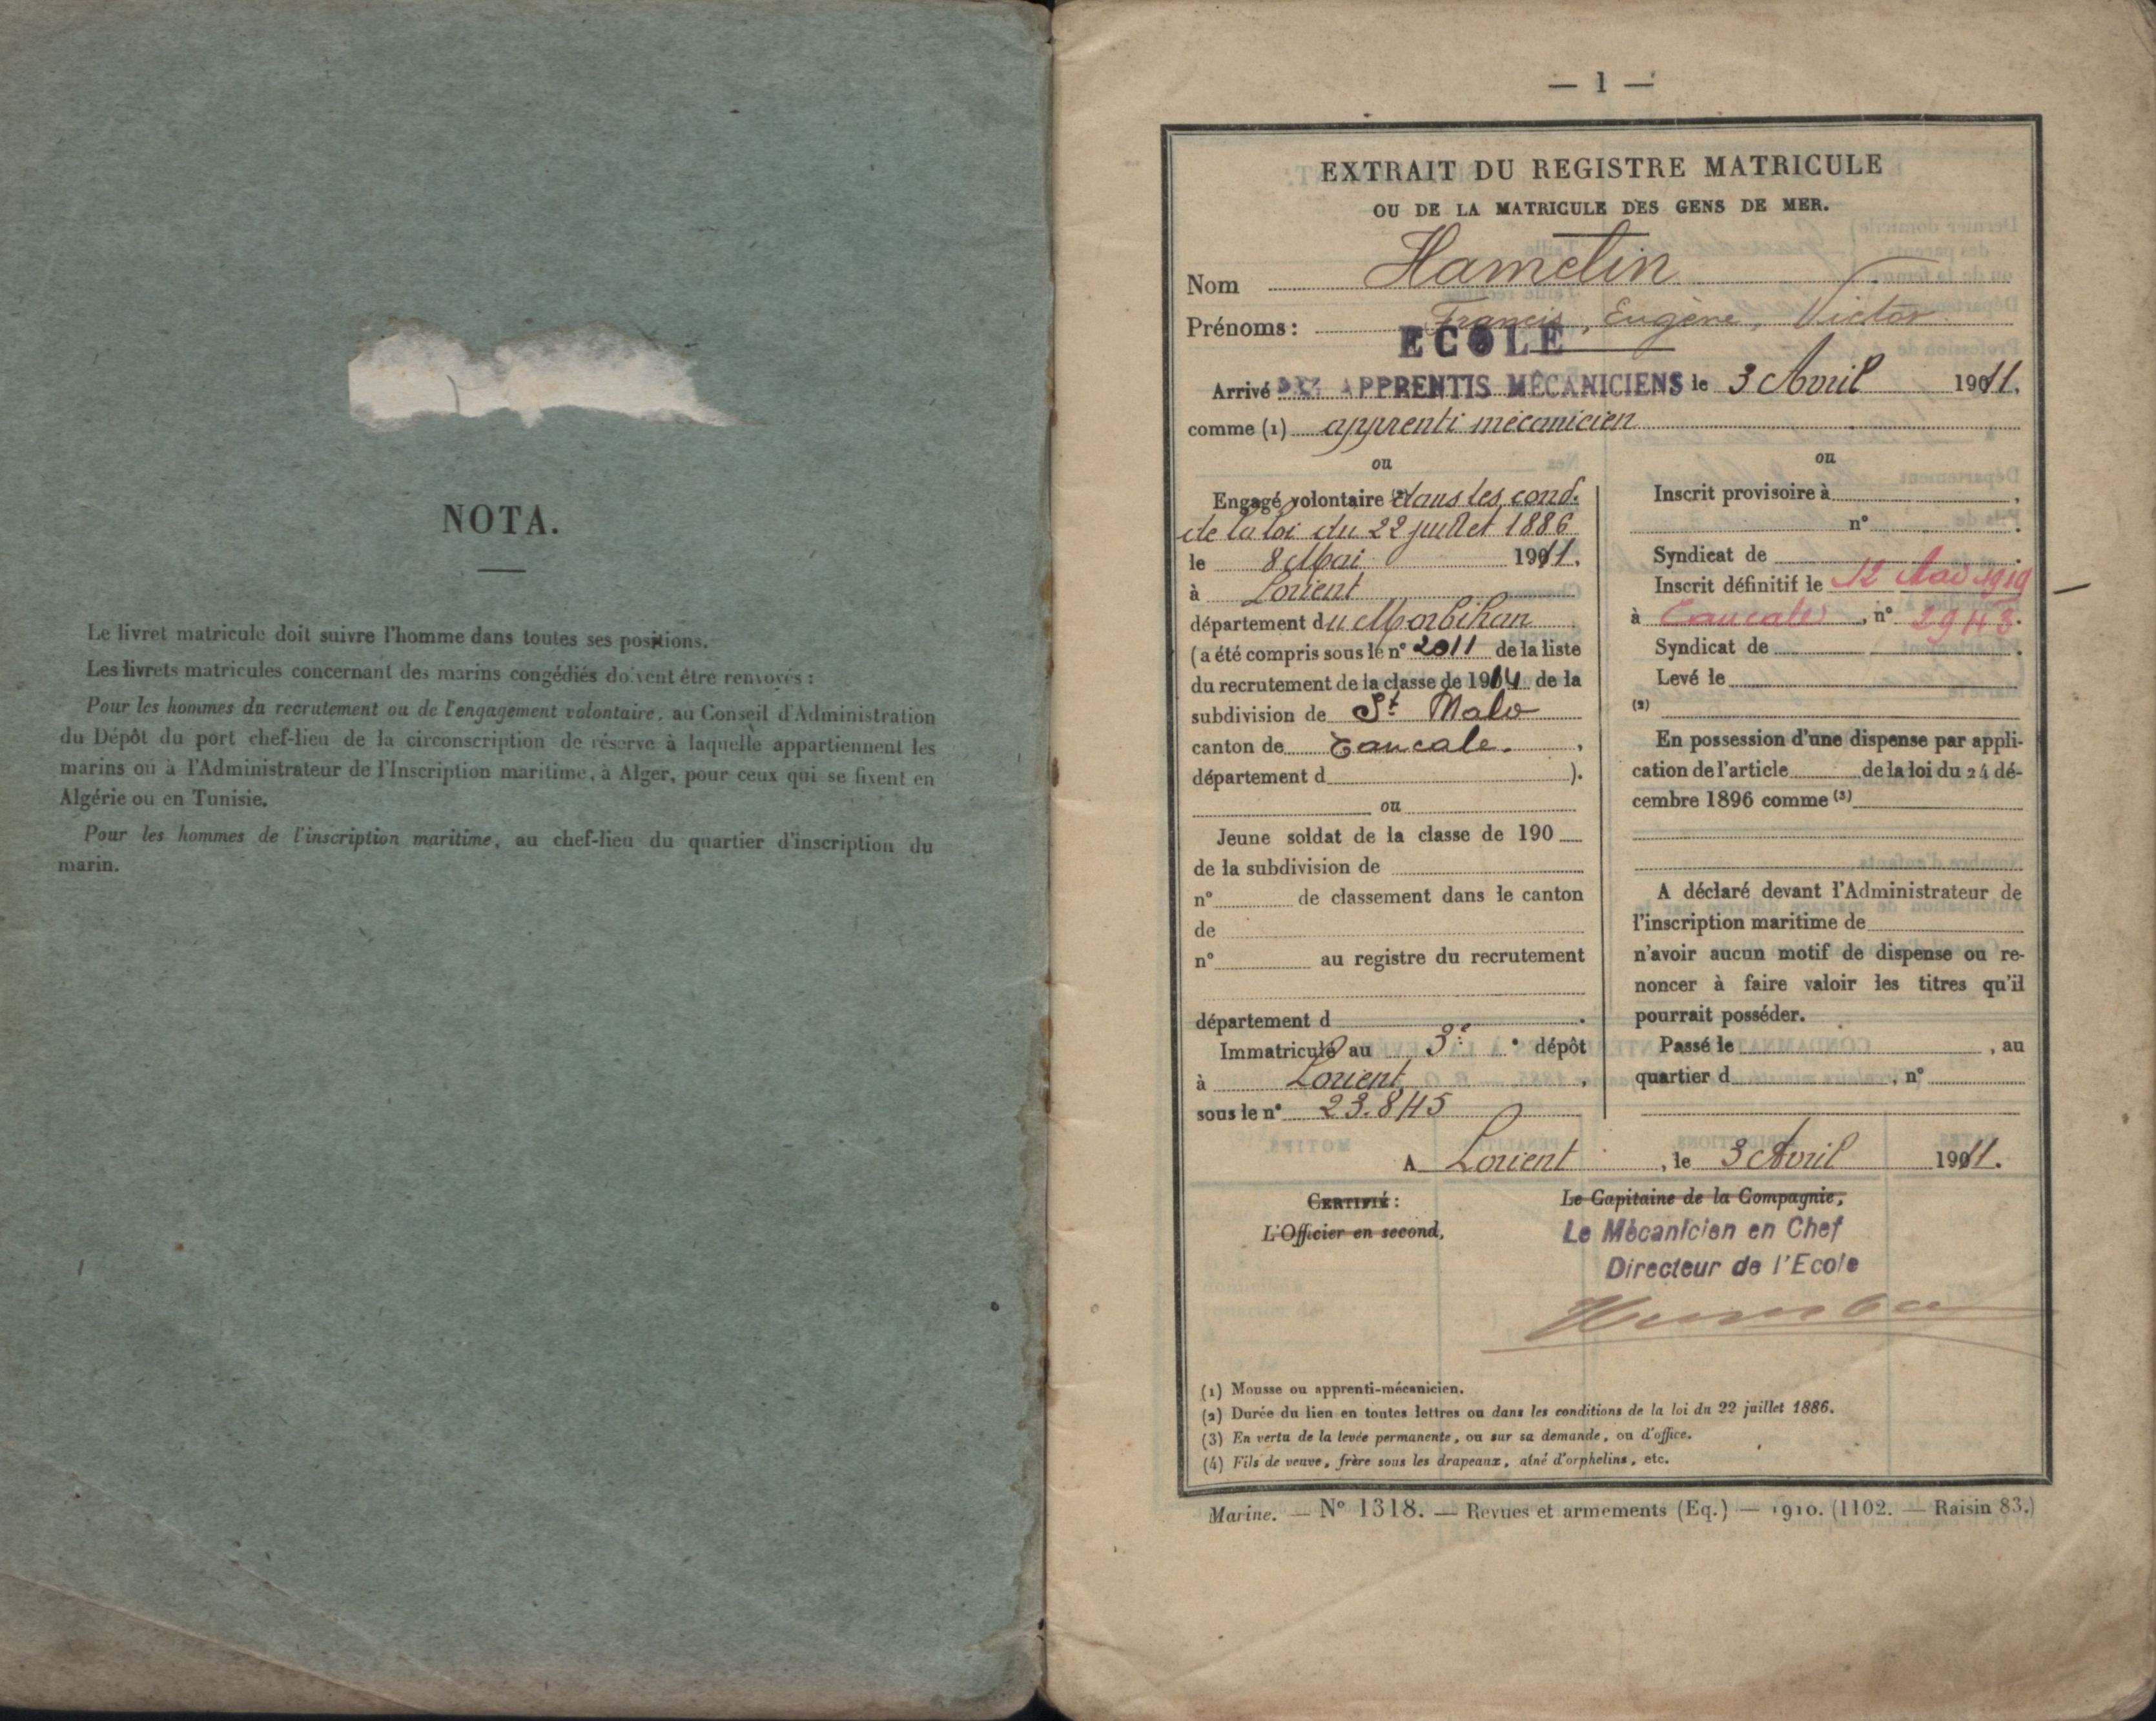 NOTA.
Le livret matricule doit suivre l'homme dans toutes ses positions.
Les livrets matricules concernant des marins congédiés doivent être renvoyés :
Pour les hommes du recrutement ou de l'engagement volontaire, au Conseil d'Administration
du Dépôt du port chef-lieu de la circonscription de réserve à laquelle appartiennent les
marins ou à l'Administrateur de l'Inscription maritime, à Alger, pour ceux qui se fixent en
Algérie ou en Tunisie.
Pour les hommes de l'inscription maritime, au chef-lieu du quartier d'inscription du
marin.
— 1 —
EXTRAIT DU REGISTRE MATRICULE
OU DE LA MATRICULE DES GENS DE MER.
Nom Hamelin
Prénoms : Francis, Eugène, Victor
ECOLE
Arrivé DES APPRENTIS MÉCANICIENS le 3 Avril 1911.
comme (1) apprenti mécanicien
ou
Engagé volontaire (2) dans les cond.
de la loi du 22 juillet 1886
le 8 Mai 1911.
à Lorient
département du Morbihan
(a été compris sous le n° 2011 de la liste
du recrutement de la classe de 1914 de la
subdivision de St Malo
canton de Cancale.,
département d ).
ou
Jeune soldat de la classe de 190
de la subdivision de
n° de classement dans le canton
de
n° au registre du recrutement
département d .
Immatriculé au 3e ° dépôt
à Lorient,
sous le n° 23.845
ou
Inscrit provisoire à ,
n° .
Syndicat de .
Inscrit définitif le 12 Mai 1919
à Cancale, n° 2943.
Syndicat de .
Levé le
(2)
En possession d'une dispense par appli-
cation de l'article de la loi du 24 dé-
cembre 1896 comme (3)
A déclaré devant l'Administrateur de
l'inscription maritime de
n'avoir aucun motif de dispense ou re-
noncer à faire valoir les titres qu'il
pourrait posséder.
Passé le , au
quartier d , n°
A Lorient, le 3 Avril 1911.
CERTIFIÉ :
L'Officier en second,
Le Capitaine de la Compagnie,
Le Mécanicien en Chef
Directeur de l'Ecole
(1) Mousse ou apprenti-mécanicien.
(2) Durée du lien en toutes lettres ou dans les conditions de la loi du 22 juillet 1886.
(3) En vertu de la levée permanente, ou sur sa demande, ou d'office.
(4) Fils de veuve, frère sous les drapeaux, aîné d'orphelins, etc.
Marine. — N° 1318. — Revues et armements (Eq.) — 1910. (1102. — Raisin 83.)